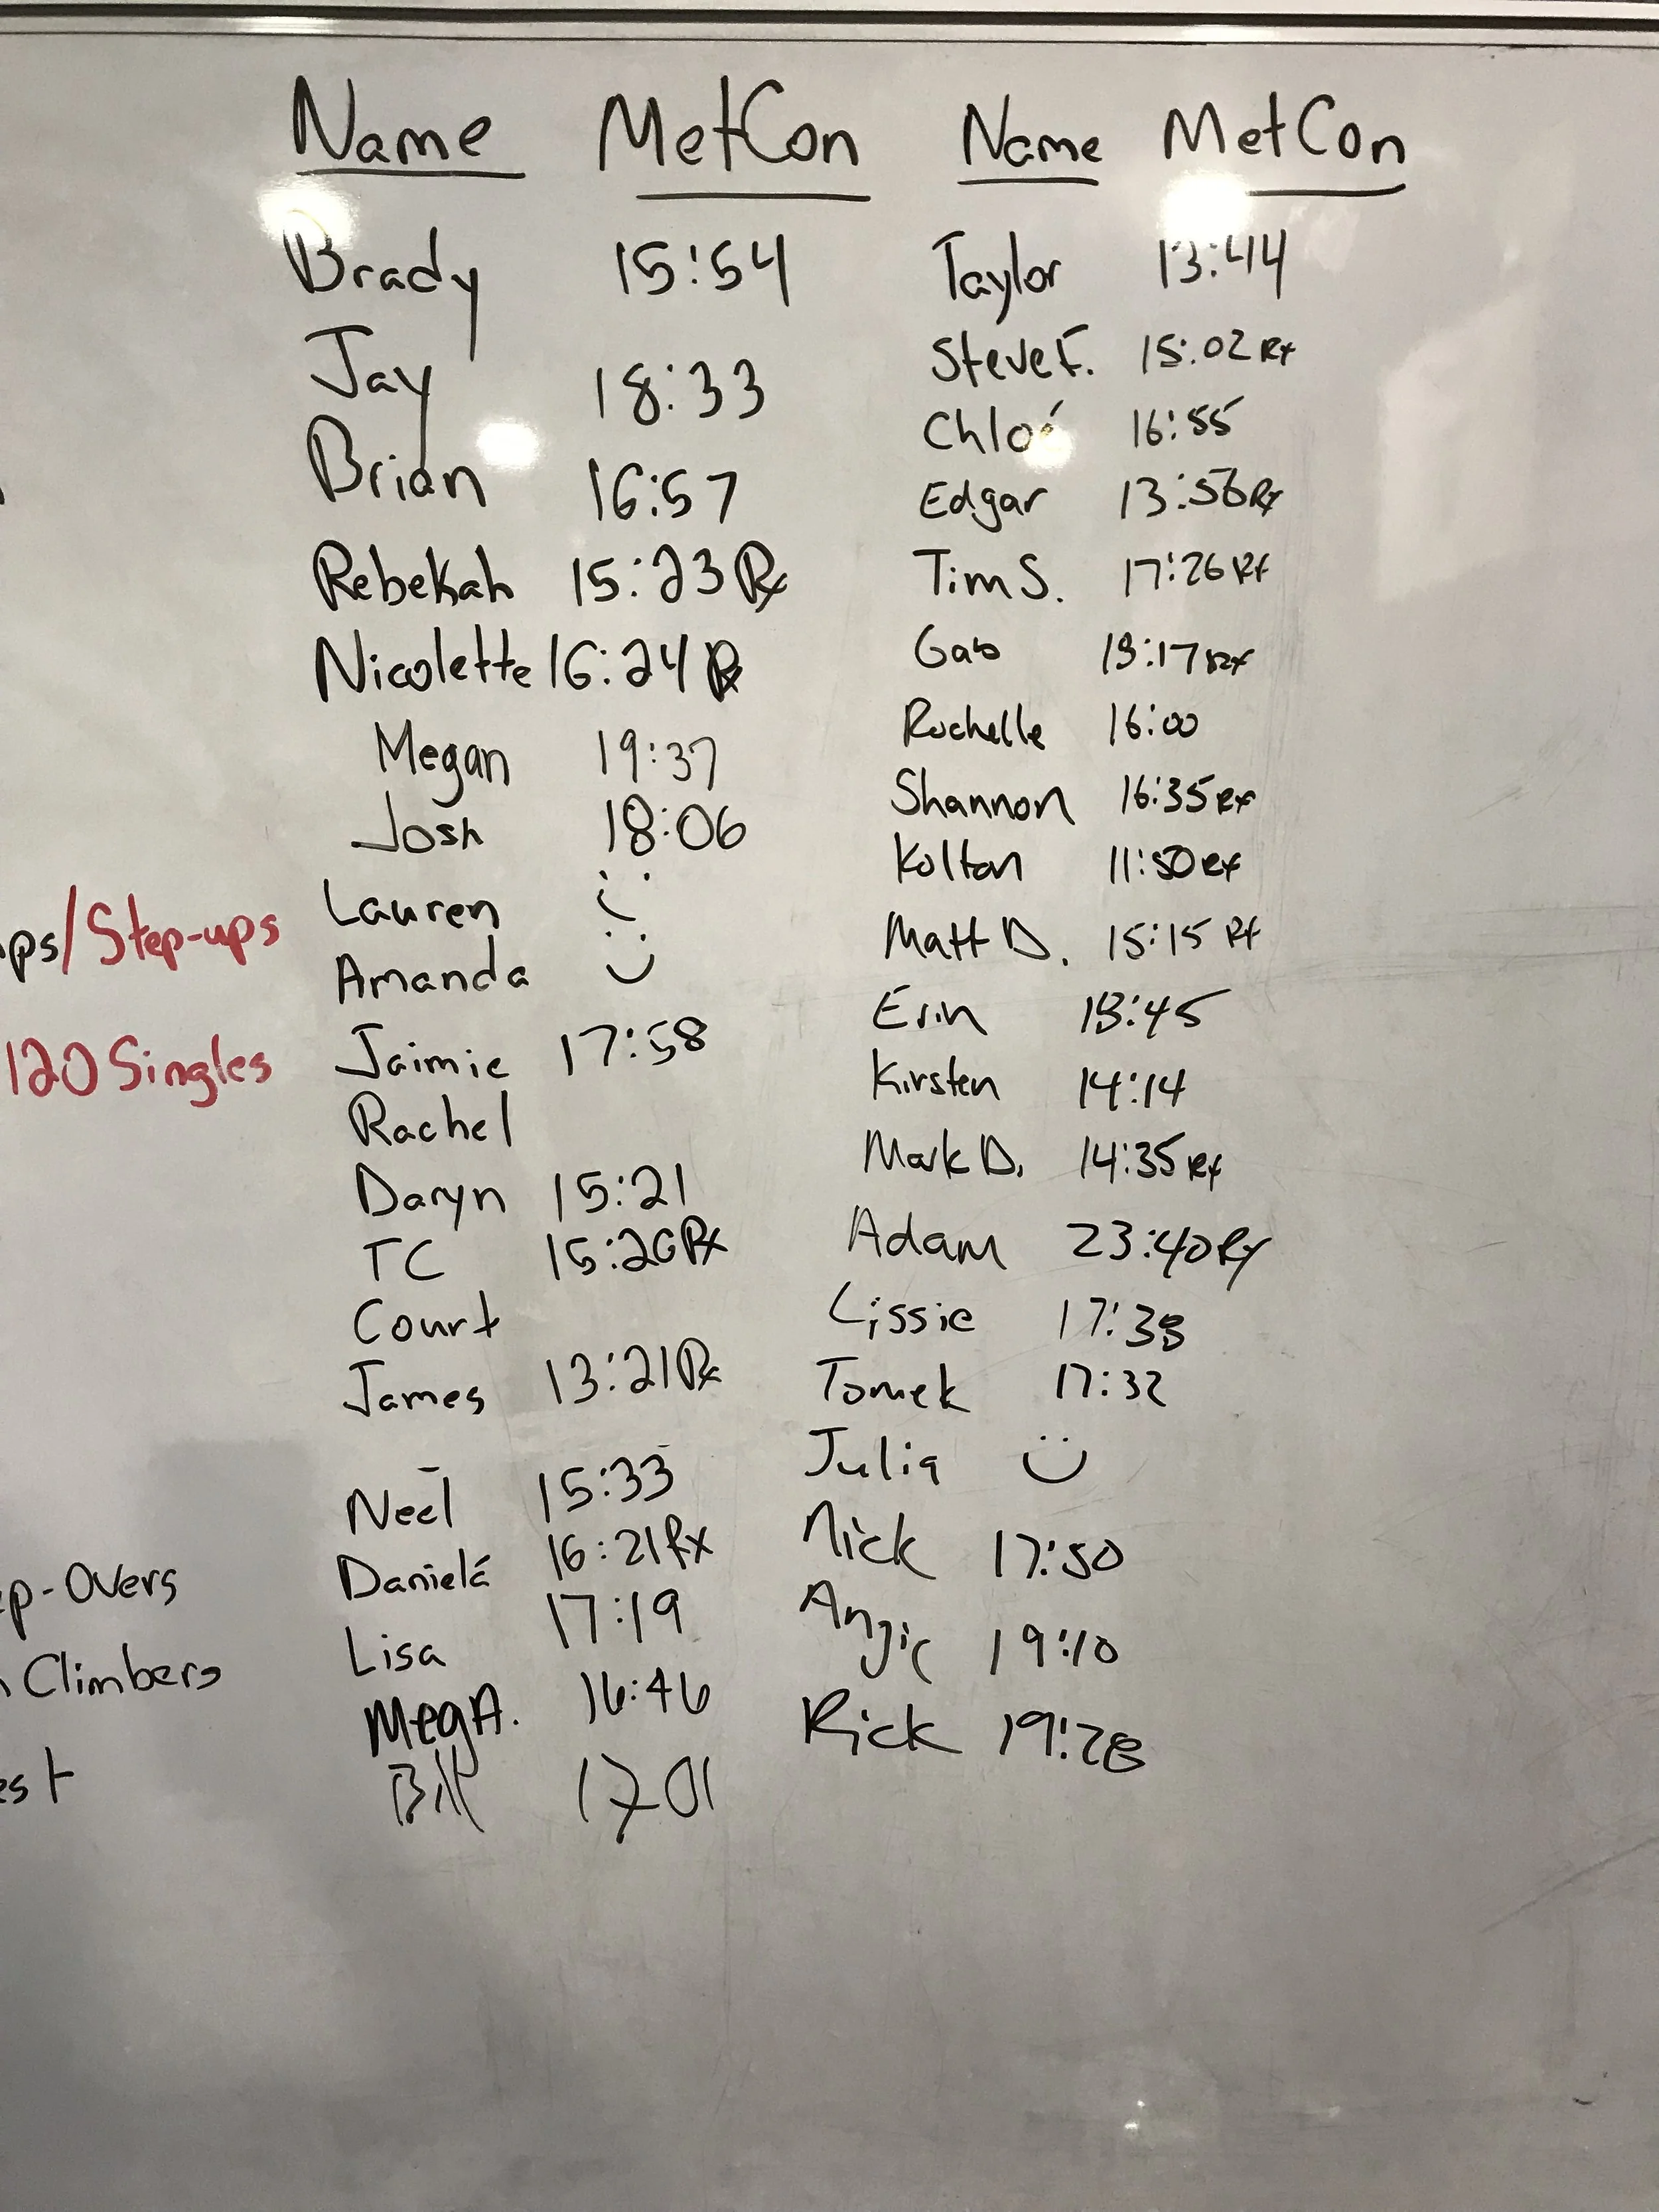 Name MetCon Name MetCon
Brady 15:54
Jay 18:33
Brian 16:57
Rebekah 15:23 Rx
Nicolette 16:24 Rx
Megan 19:37
Josh 18:06
Lauren :(
Amanda :)
Jaimie 17:58
Rachel
Daryn 15:21
TC 15:20 Rx
Court
James 13:21 Rx
Neel 15:33
Daniela 16:21 Rx
Lisa 17:19
Meg A. 16:46
Bill 17:01
Taylor 13:44
Steve F. 15:02 Rx
Chloé 16:55
Edgar 13:56 Rx
Tim S. 17:26 Rx
Gab Rx
Rochelle 16:00
Shannon 16:35 Rx
Kolton 11:50 Rx
Matt D. 15:15 Rx
Erin
Kirsten 14:14
Mark D. 14:35 Rx
Adam 23:40 Rx
Lissie 17:38
Tomek 17:32
Julia :)
Nick 17:50
Angie 19:10
Rick 19:28
/Step-ups
120 Singles
p-Overs
Climbers